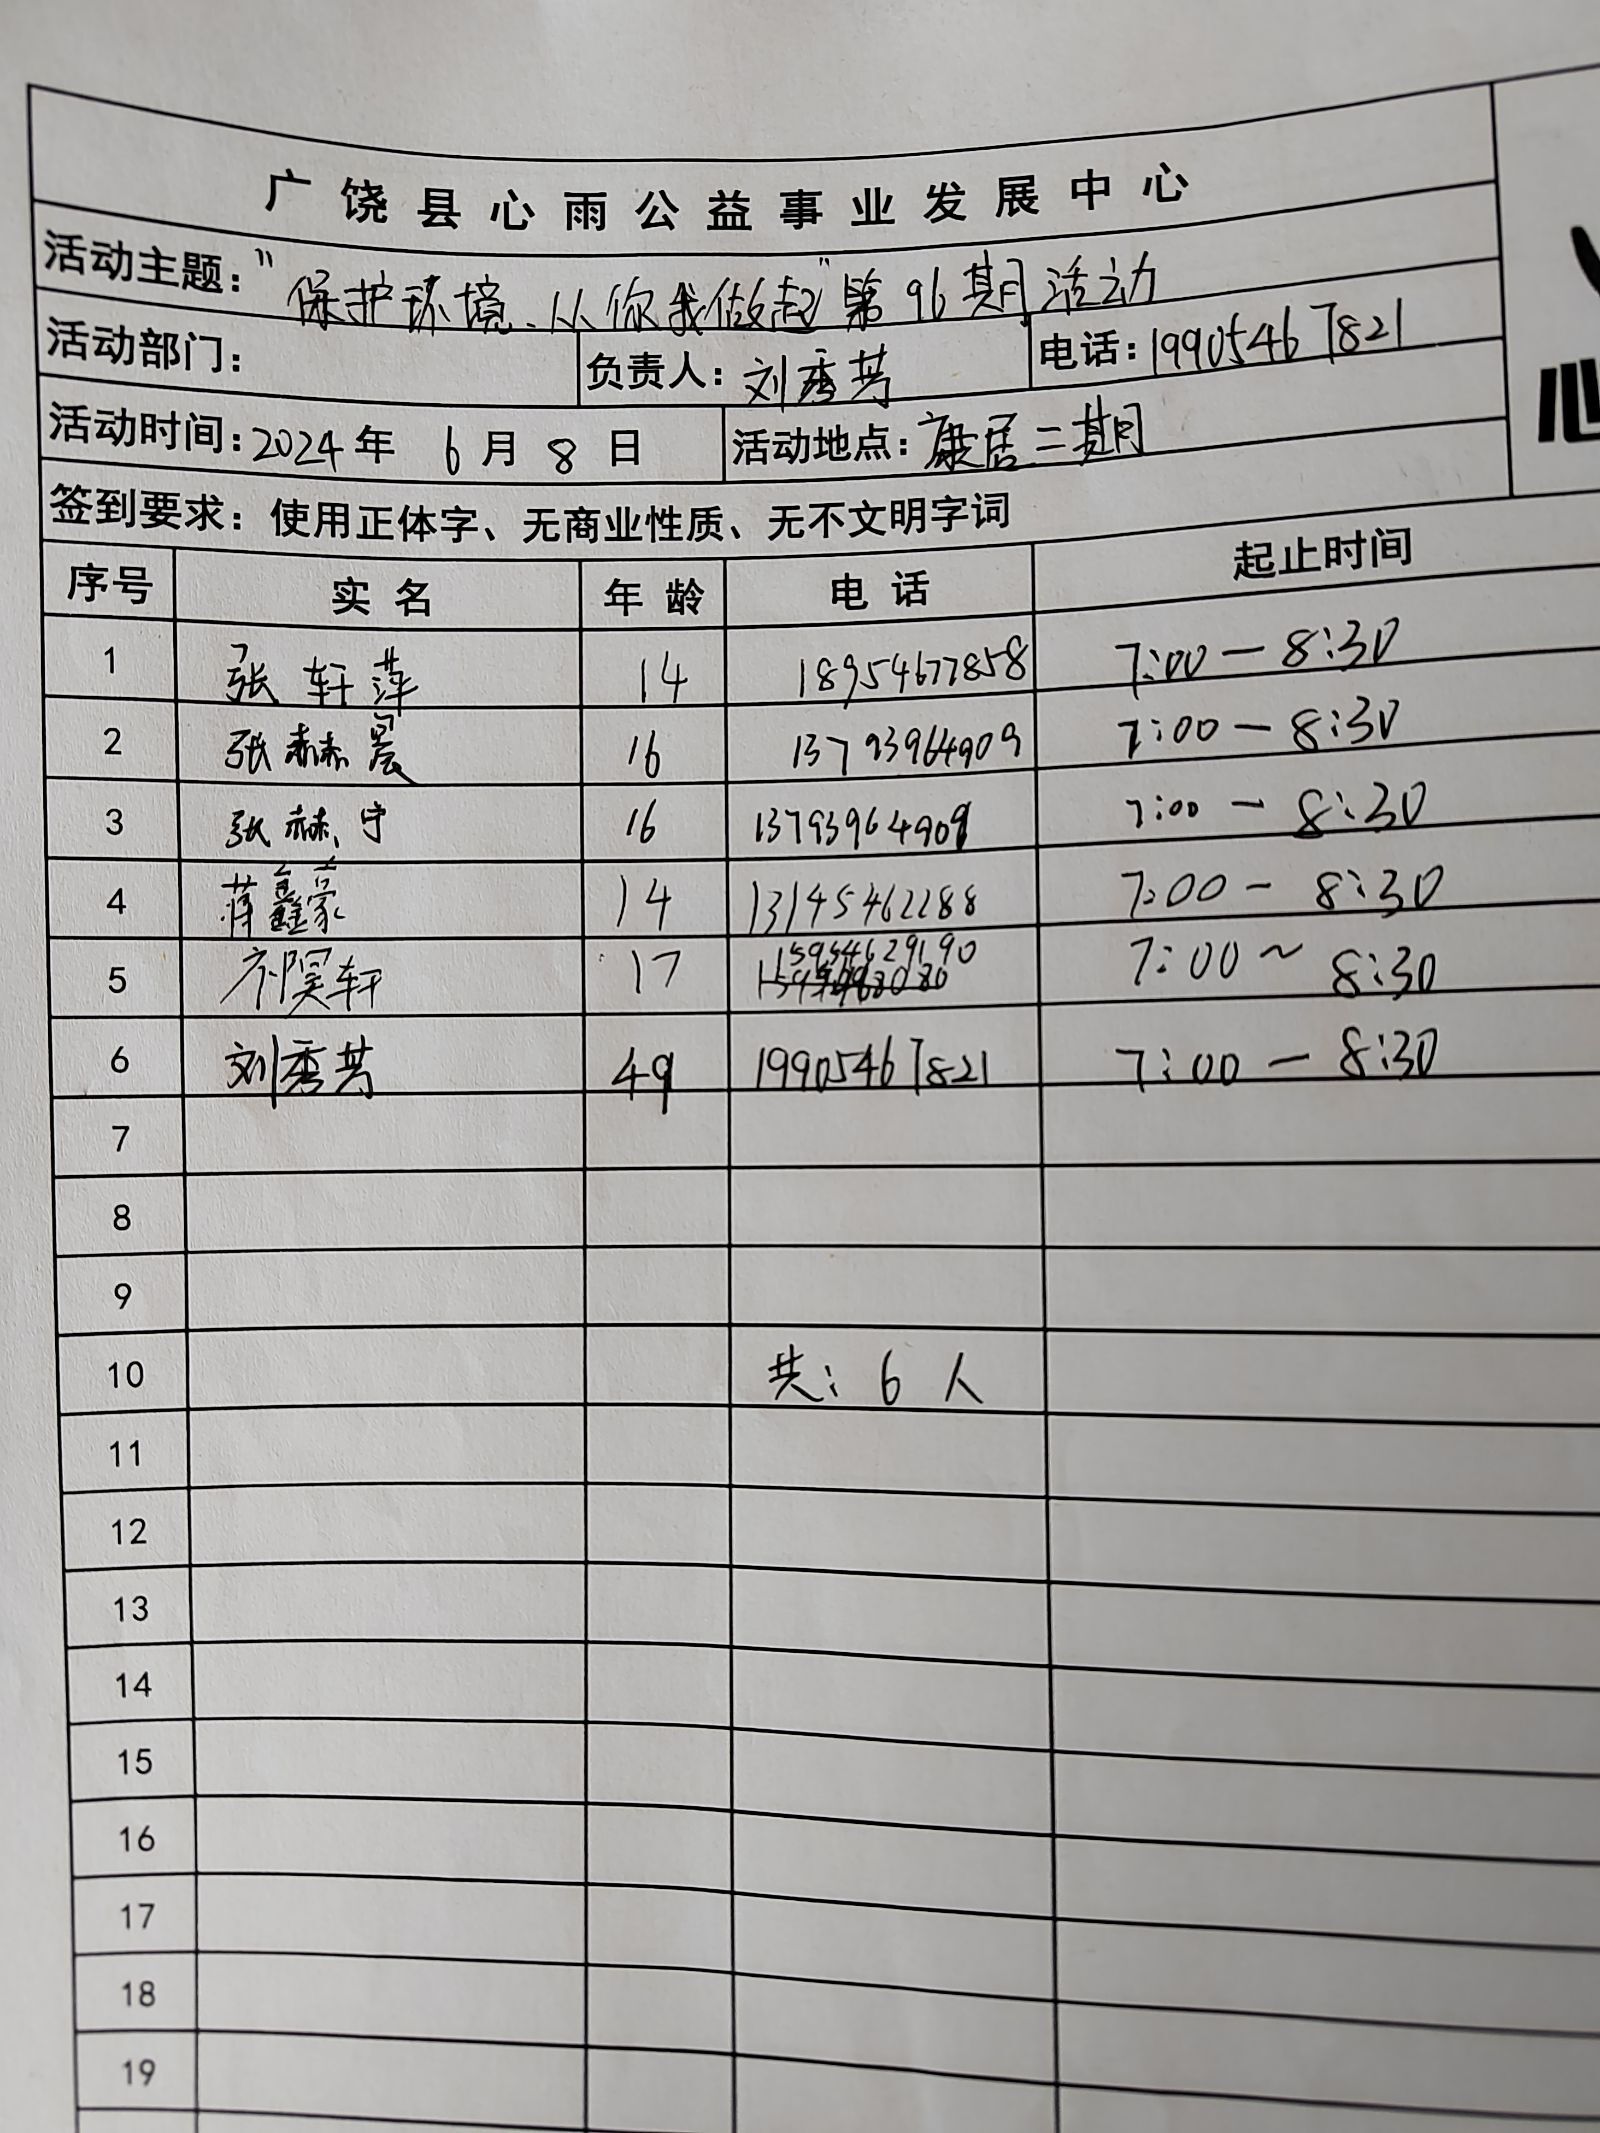 广饶县心雨公益事业发展中心
活动主题："保护环境、从你我做起"第96期活动
活动部门： 负责人：刘秀芬 电话：19905467821
活动时间：2024年 6月 8日 活动地点：康居二期
签到要求：使用正体字、无商业性质、无不文明字词
序号 实名 年龄 电话 起止时间
1 张轩萍 14 18954677858 7:00-8:30
2 张赫晨 16 13793964909 7:00-8:30
3 张赫宁 16 13793964909 7:00-8:30
4 蒋鑫豪 14 13145462288 7:00-8:30
5 轩 17 15954629190 7:00~8:30
6 刘秀芬 49 19905467821 7:00-8:30
7
8
9
10 共：6人
11
12
13
14
15
16
17
18
19